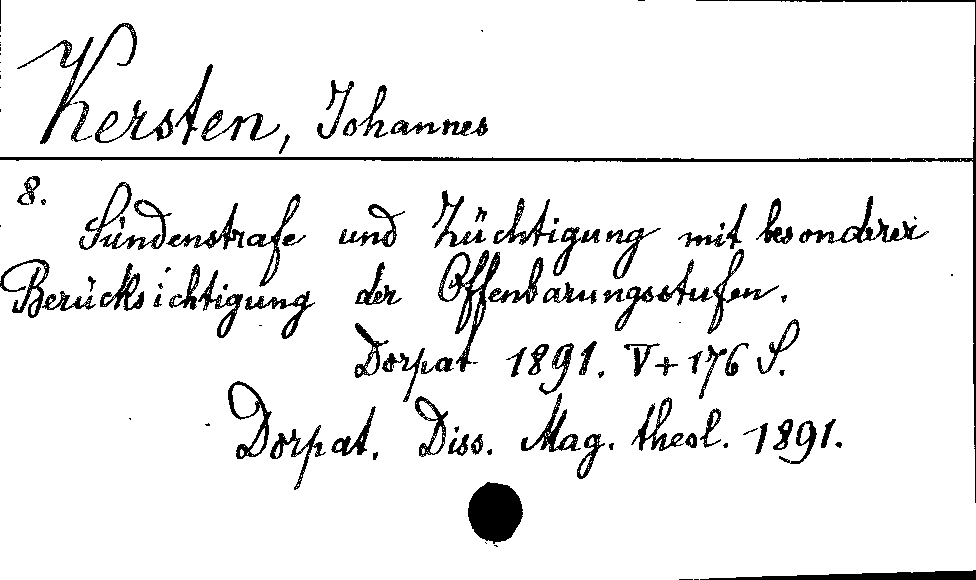 Kersten, Johannes
8.
Sündenstrafe und Züchtigung mit besonderer
Berücksichtigung der Offenbarungsstufen.
Dorpat 1891. V+176 S.
Dorpat. Diss. Mag. theol. 1891.